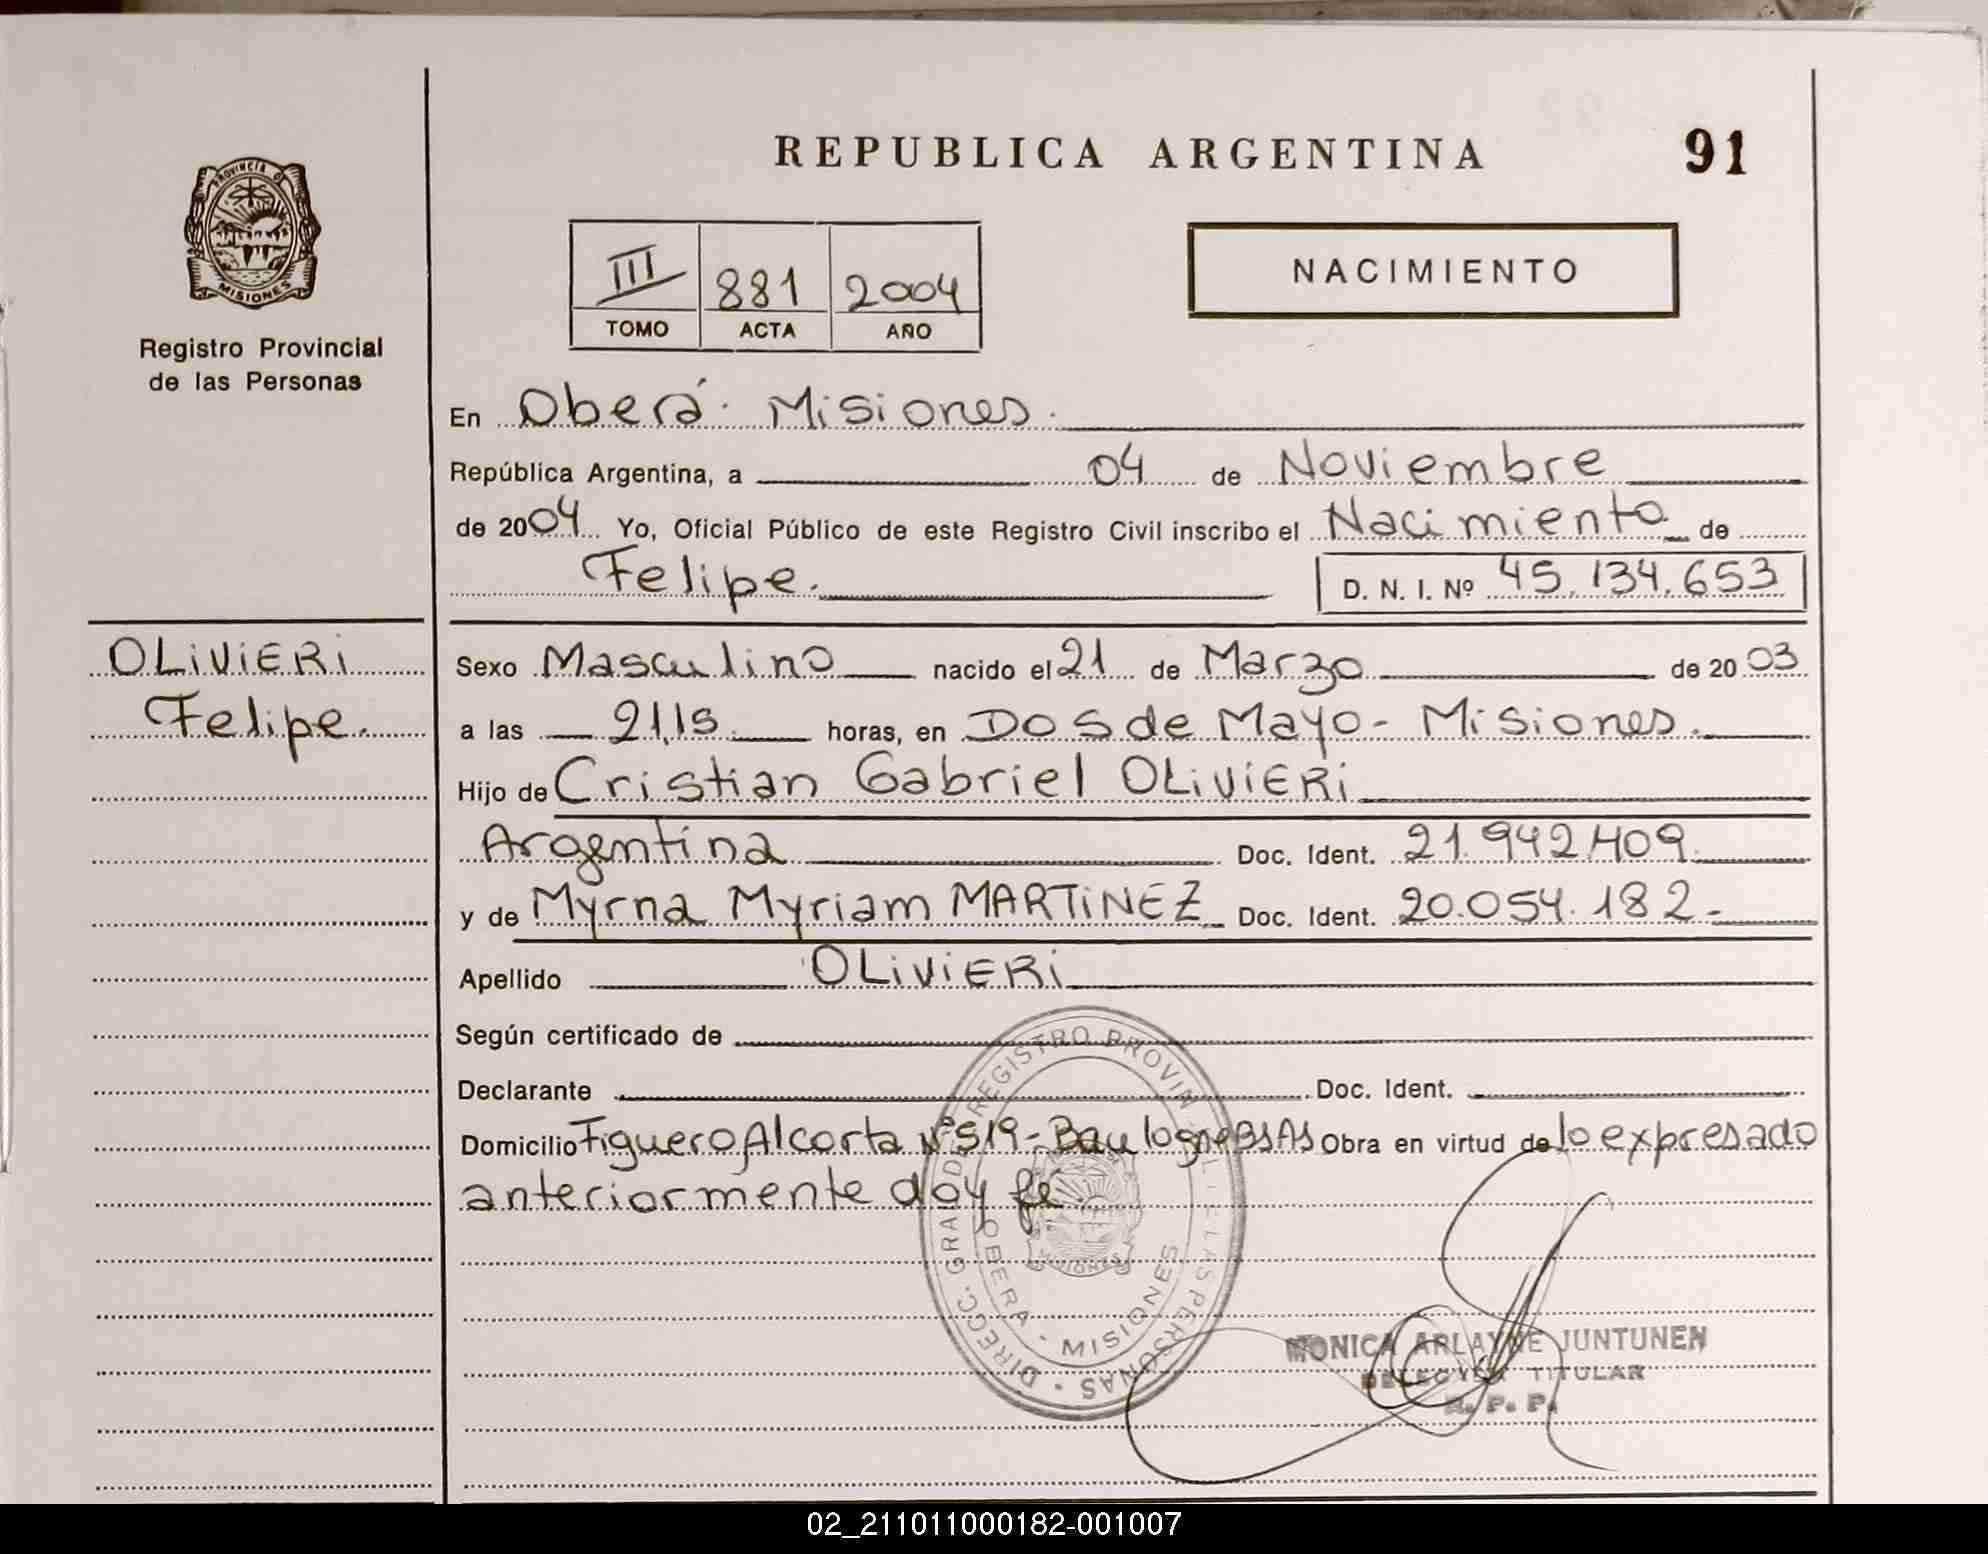 REPUBLICA ARGENTINA
91
PROVINCIA DE
MISIONES
Registro Provincial
de las Personas
III 881 2004
TOMO ACTA AÑO
NACIMIENTO
En Oberá. Misiones.
República Argentina, a 04 de Noviembre
de 2004 Yo, Oficial Público de este Registro Civil inscribo el Nacimiento de
Felipe. D. N. I. Nº 45.134.653
OLiViERi
Felipe.
Sexo Masculino nacido el 21 de Marzo de 2003
a las 21,15. horas, en Dos de Mayo - Misiones.
Hijo de Cristian Gabriel OLiViERi
Argentina Doc. Ident. 21.942.409.
y de Myrna Myriam MARTiNEZ Doc. Ident. 20.054.182-
Apellido OLiViERi
Según certificado de
Declarante Doc. Ident.
Domicilio Figuero Alcorta Nº 519 - Boulogne BsAs Obra en virtud de lo expresado
anteriormente doy fé.
DIRECC. GRAL DE REGISTRO PROVIN LAS PERSONAS
OBERA - MISIONES
MISIONES
MONICA ARLAYNE JUNTUNEN
TITULAR
R. P. P.
02_211011000182-001007